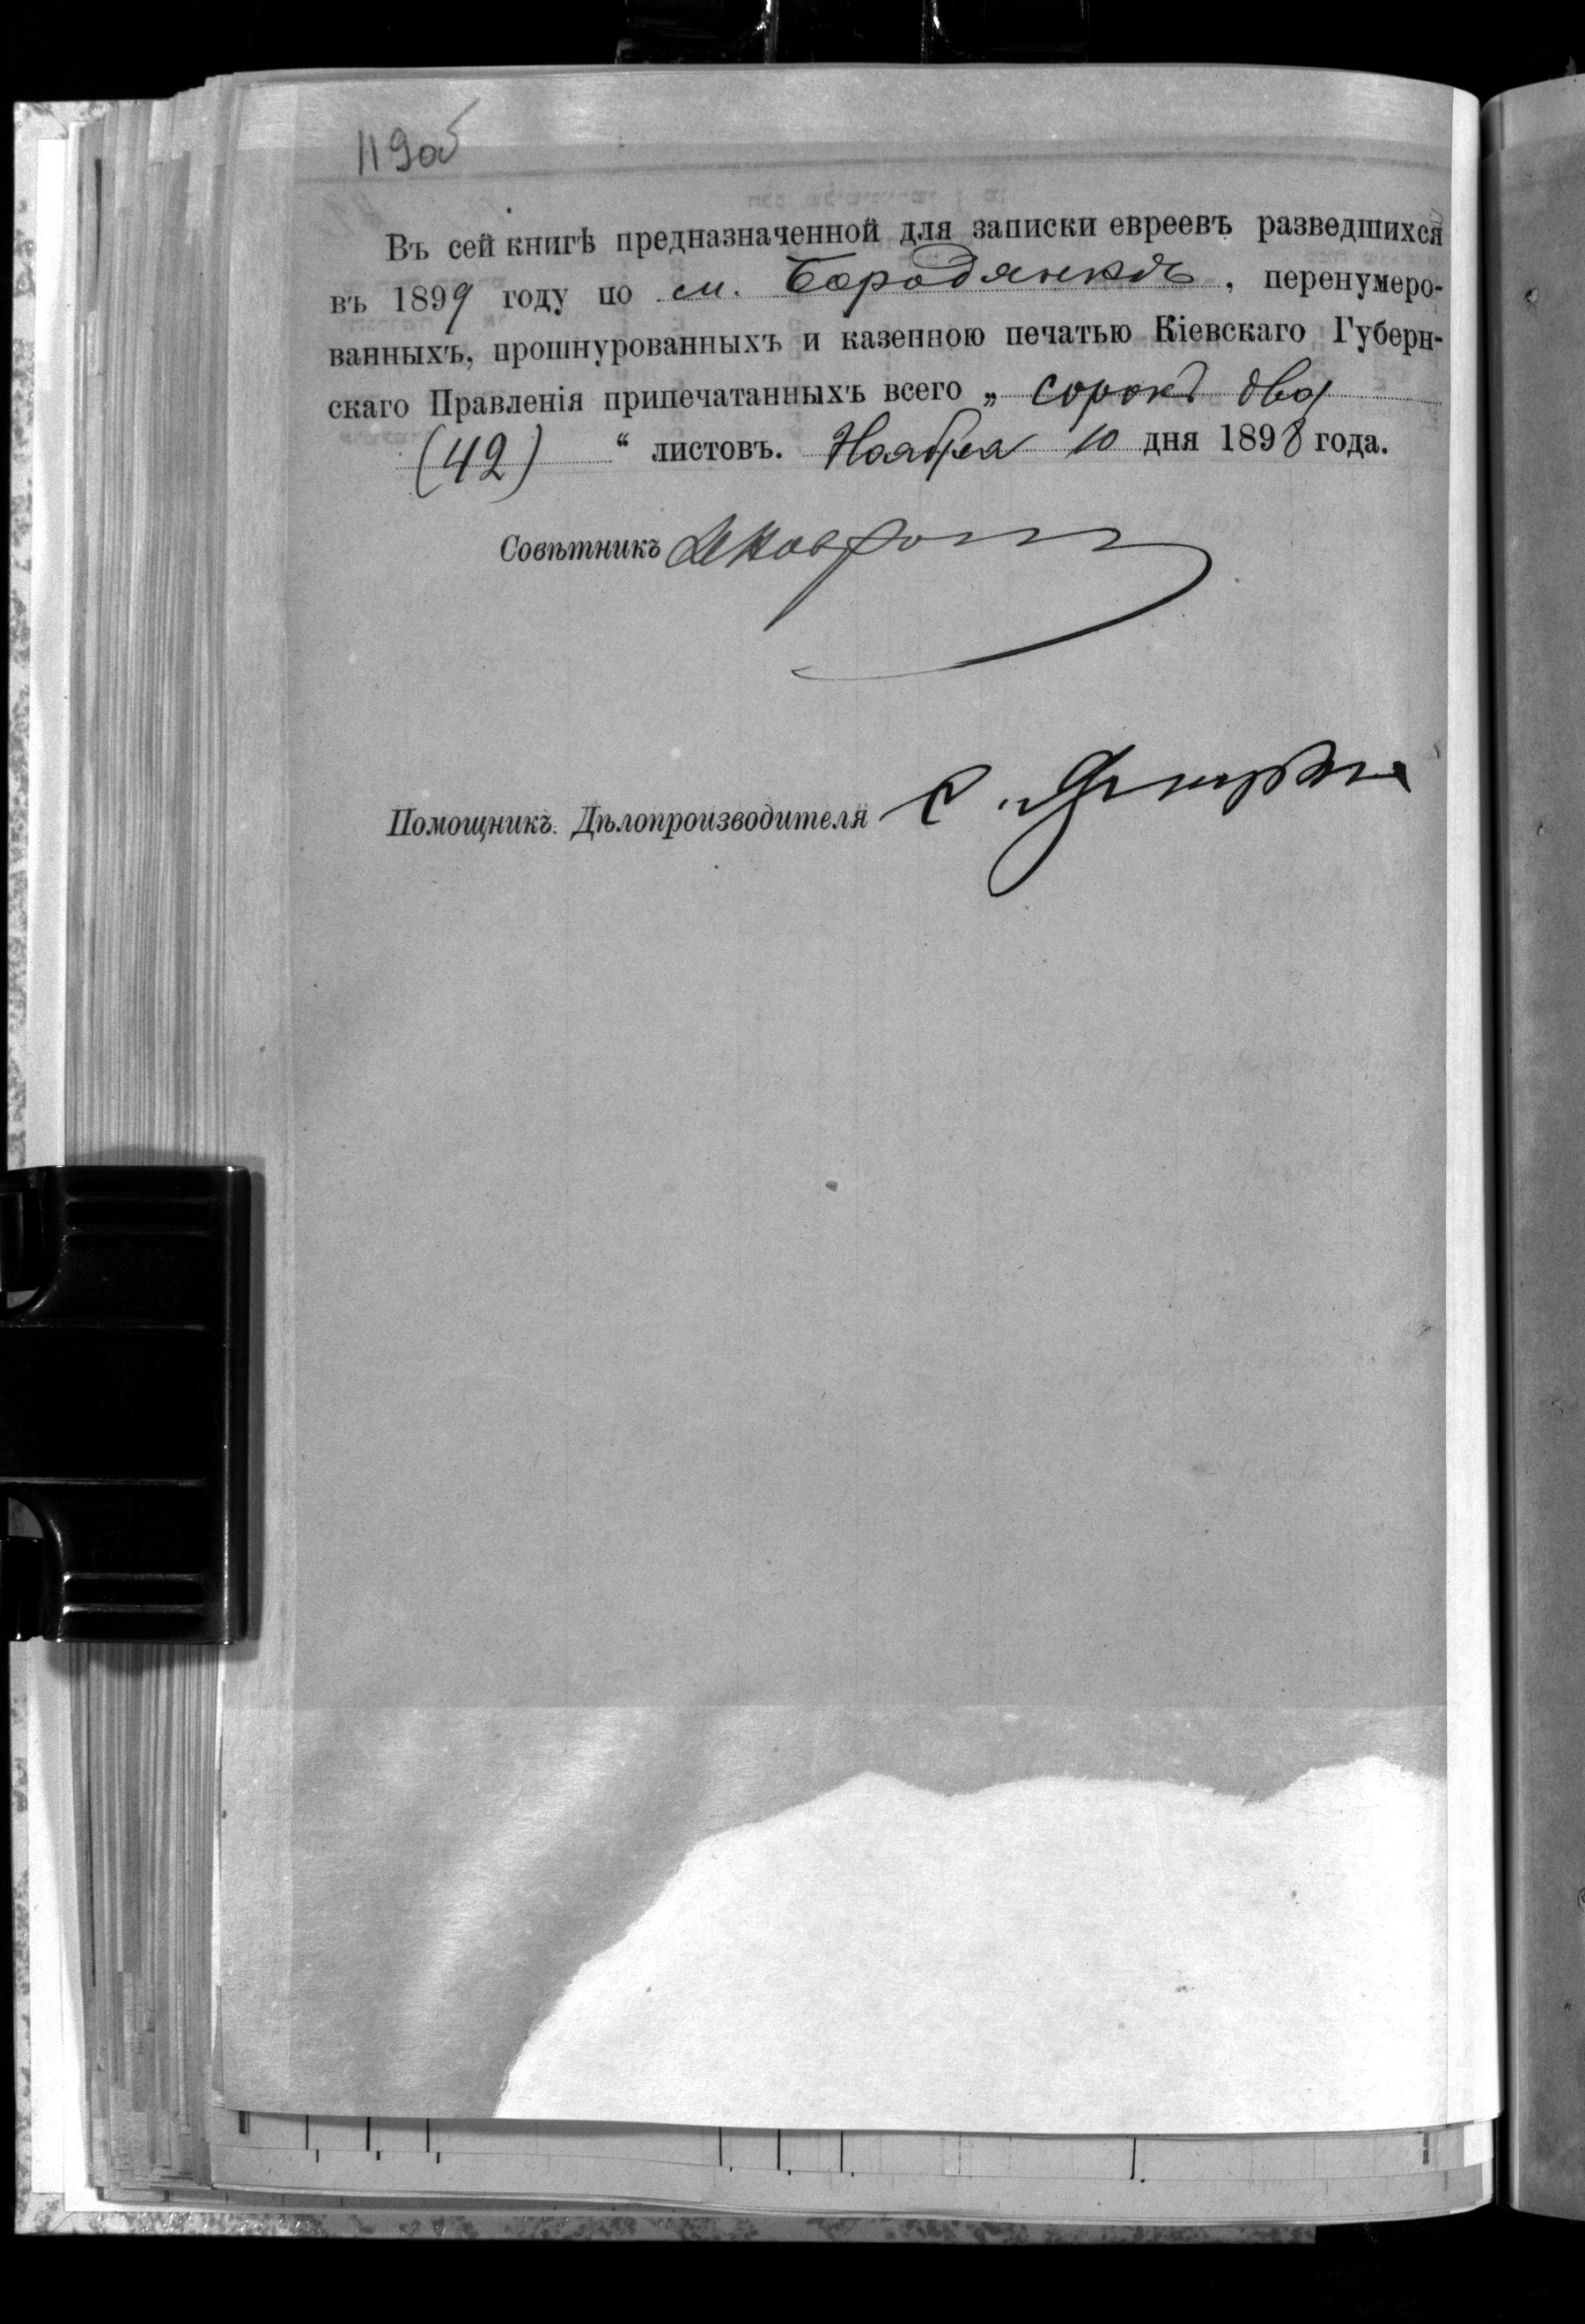 119об
Въ сей книгѣ предназначенной для записки евреевъ разведшихся
въ 1899 году по м. Бородянкѣ, перенумеро-
ванныхъ, прошнурованныхъ и казенною печатью Кіевскаго Губерн-
скаго Правленія припечатанныхъ всего „ сорокъ два
(42) “ листовъ. Ноября 10 дня 1898 года.
Совѣтникъ
Помощникъ. Дѣлопроизводителя С.